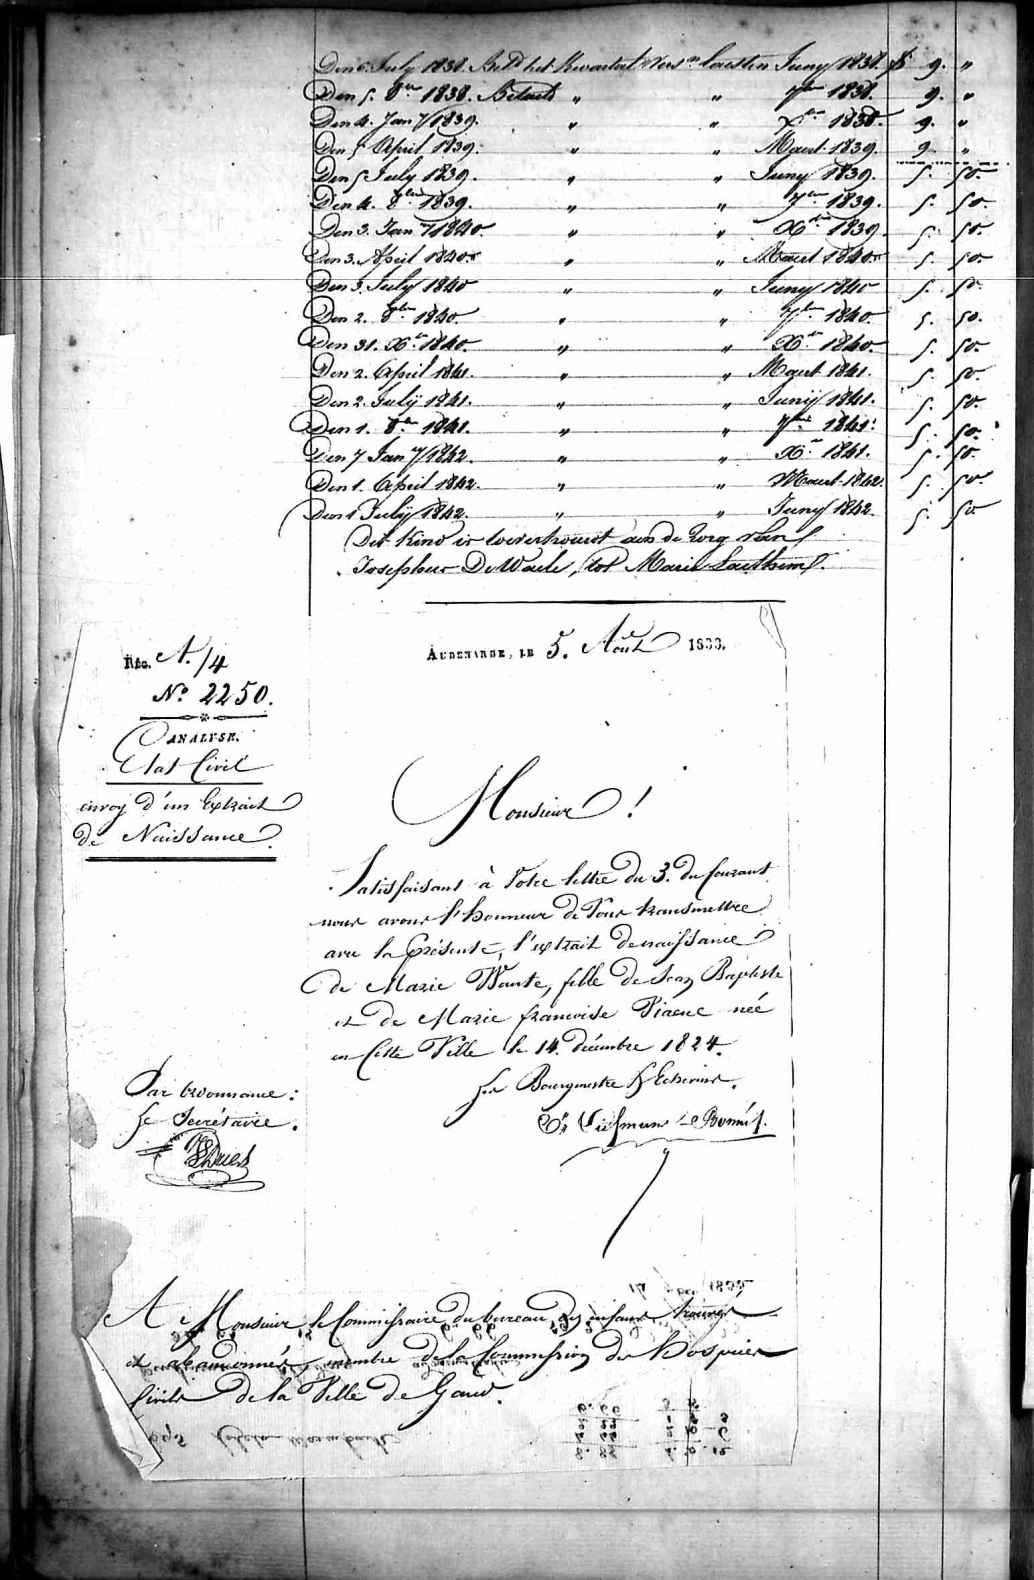 Den 6. July 1838. Bet.d het Kwartal Vers.n laesten Juny 1838. f 9. "
Den 5. 8bre 1838. Betaelt " " 7bre 1838. 9. "
Den 4. Jany 1839. " " Xbre 1838. 9. "
Den 5 April 1839. " " Maert 1839. 9. "
Den 5 July 1839. " " Juny 1839. 5. 50.
Den 4. 8bre 1839. " " 7bre 1839. 5. 50.
Den 3. Jany 1840 " " Xbre 1839. 5. 50.
Den 3. April 1840. " " Maert 1840. 5. 50.
Den 3. July 1840 " " Juny 1840 5. 50.
Den 2. 8bre 1840. " " 7bre 1840. 5. 50.
Den 31. Xbre 1840. " " Xbre 1840. 5. 50.
Den 2. April 1841. " " Maert 1841. 5. 50.
Den 2. July 1841. " " Juny 1841. 5. 50.
Den 1. 8bre 1841. " " 7bre 1841. 5. 50.
Den 7 Jany 1842. " " Xbre 1841. 5. 50.
Den 1. April 1842. " " Maert 1842. 5. 50.
Den 1 July 1842. " " Juny 1842. 5. 50
Dit kind is toevertrouwt aen de zorg van
Josephus De Waele, tot Maria Laethem.
Rég. A. /4
N.o 2250.
ANALYSE.
Etat Civil
envoy d'un Extrait
de Naissance.
AUDENARDE, LE 5. Août 1833.
Monsieur !
Satisfaisant à Votre lettre du 3. du Courant
nous avons l'honneur de Vous transmettre
avec la Présente, l'extrait de naissance
de Marie Wante, fille de Jean Baptiste
et de Marie francoise Piaene née
en Cette Ville le 14. décembre 1824.
Les Bourgmestre & Echevins.
Par Ordonnance :
Le Secrétaire.
A Monsieur le Commissaire du bureau des enfans trouvés
et abandonnés, membre de la Commission des Hospices
Civils de la Ville de Gand.